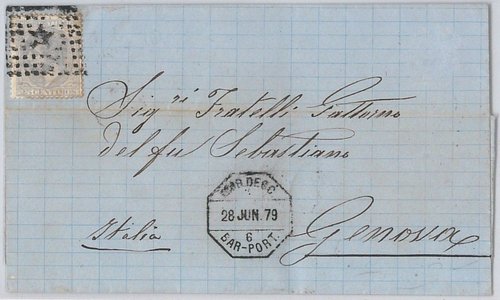 CENTIMOS
Sig.ri Fratelli Gattorno
del fu Sebastiano
28 JUN. 79
6
BAR-PORT.
Italia
Genova